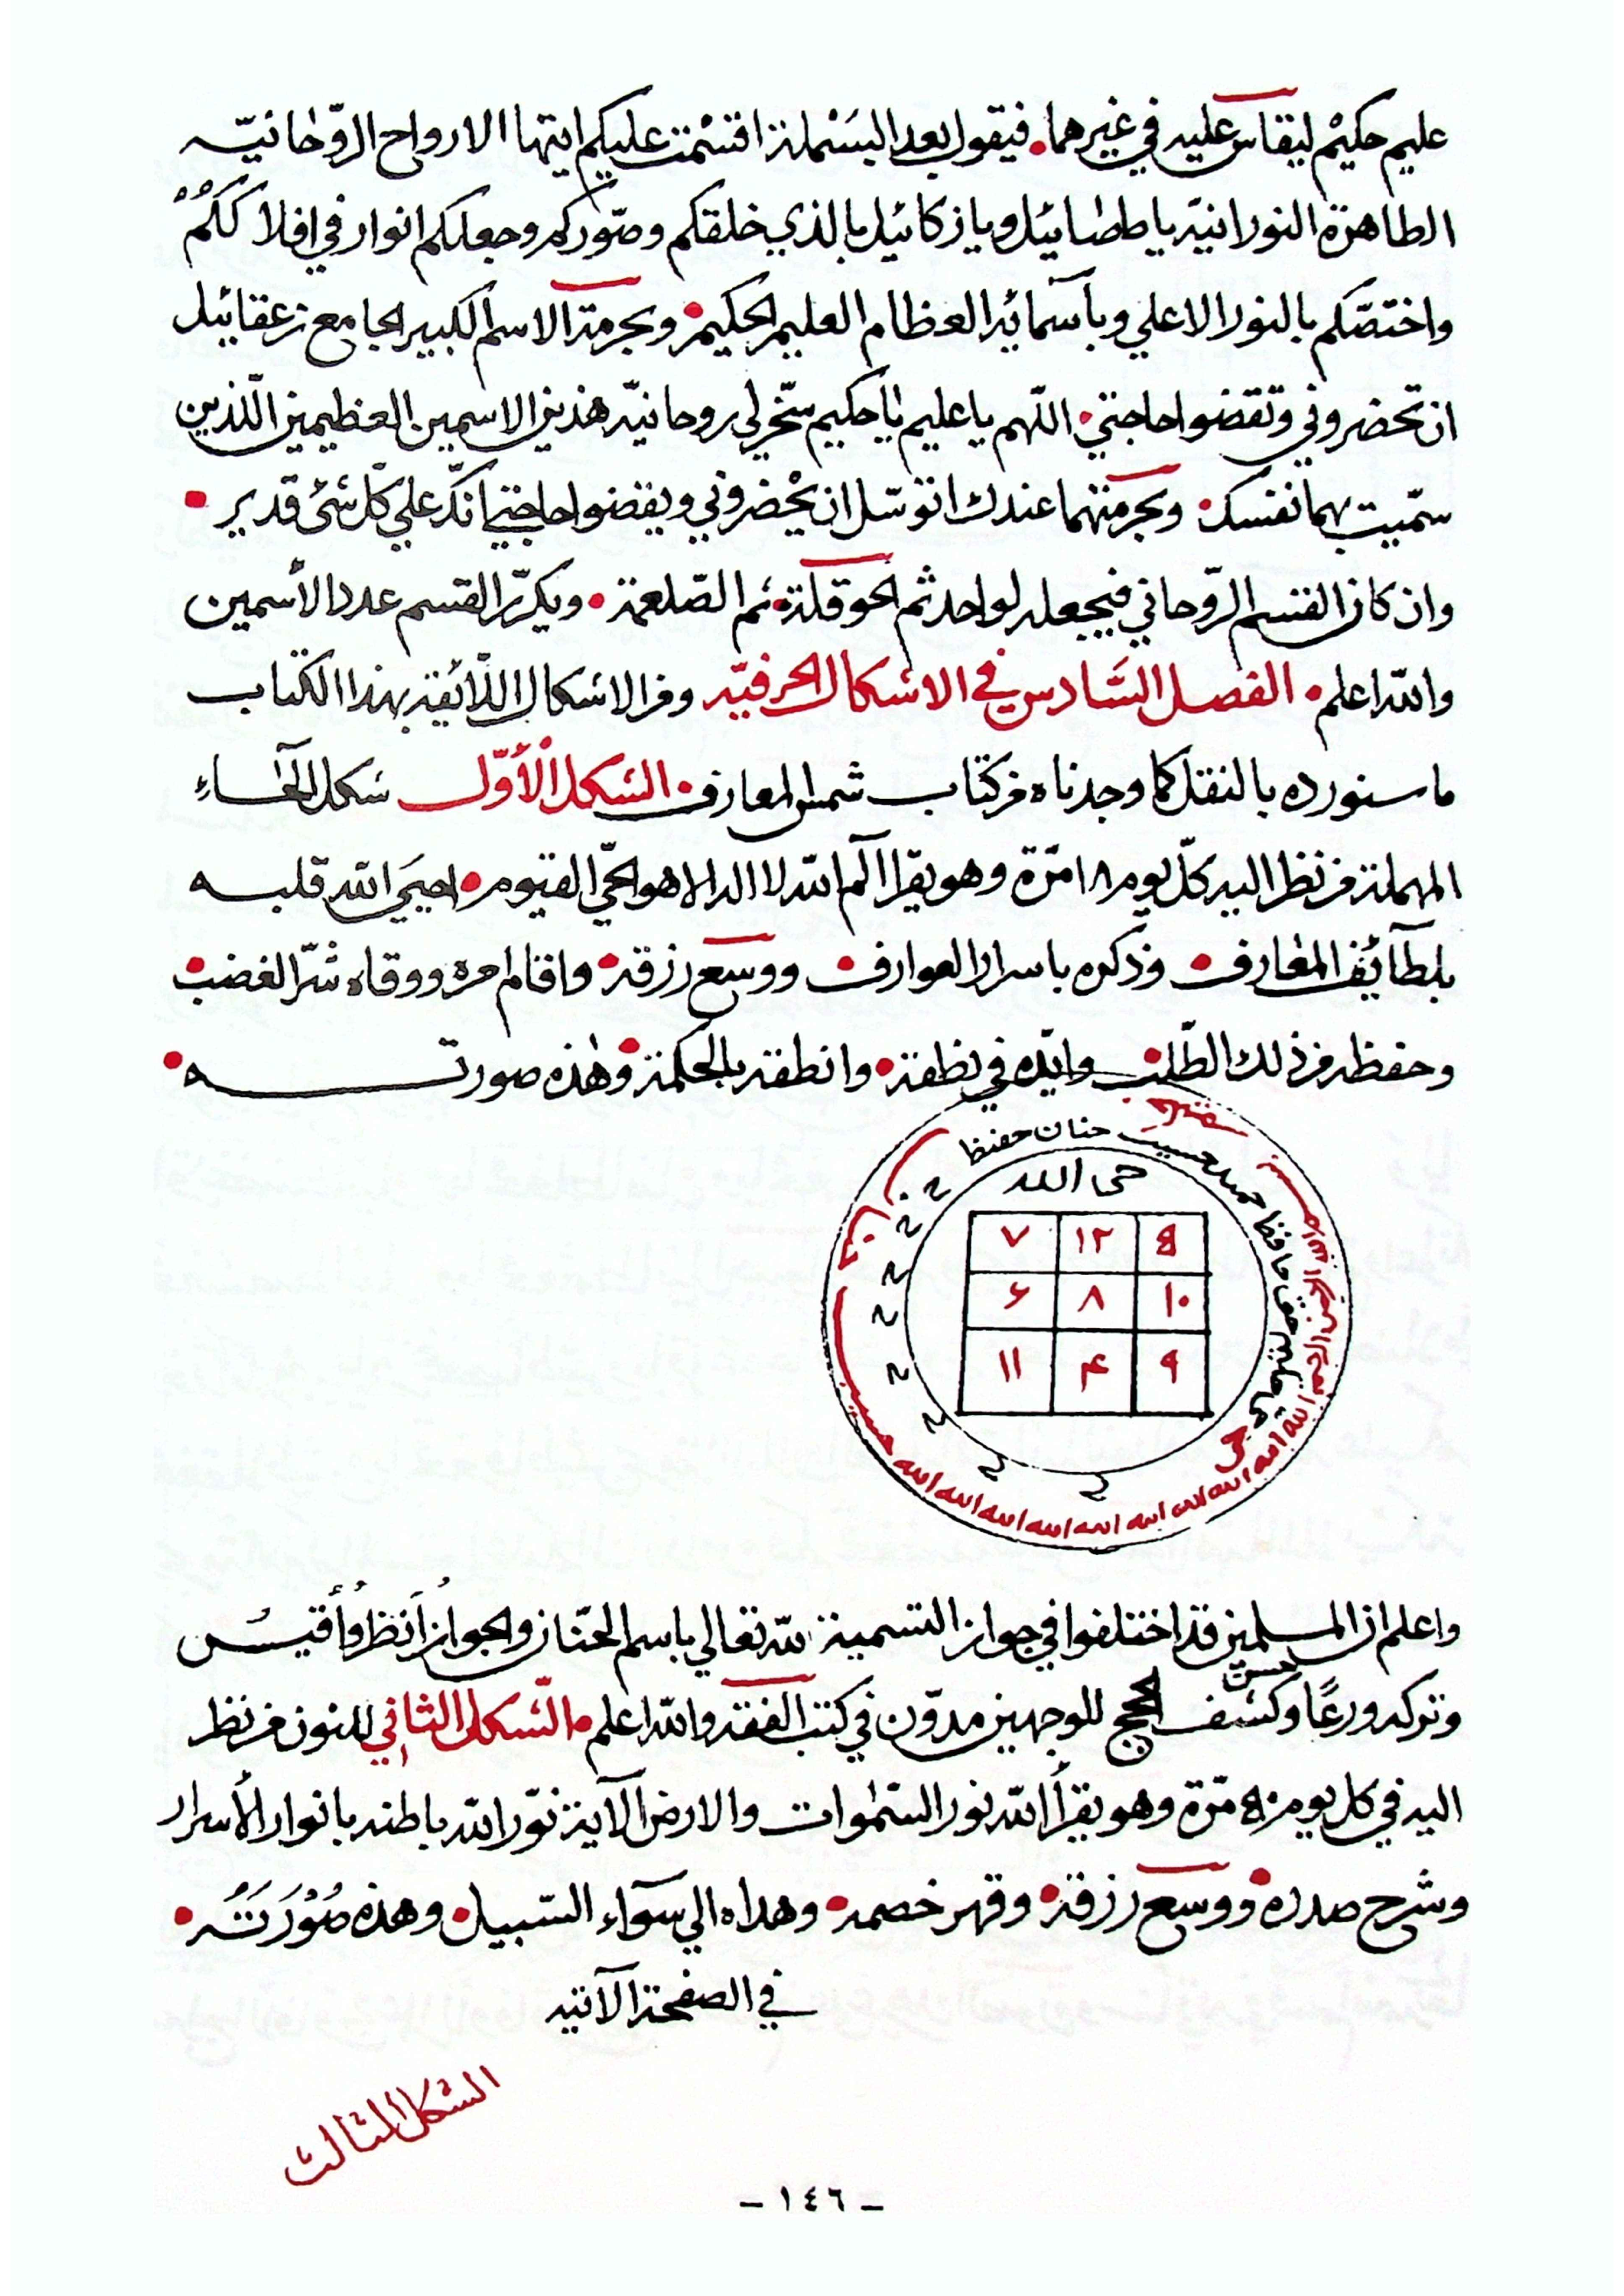 عليم حكيم ليقاس عليه في غيرهما. فيقول بعد البسملة اقسمت عليكم ايتها الارواح الروحانيّه
الطاهرة النورانيّه يا طصائيل ويا زكائيل بالذي خلقكم وصوّركم وجعلكم انوار في افلاككم
واختصّكم بالنور الاعلي وبأسمائه العظام العليم الحكيم. وبحرمة الاسم الكبير الجامع زعقائيل
ان تحضروني وتقضوا حاجتي. اللّهم يا عليم يا حكيم سخّر لي روحانيّه هذين الاسمين العظيمين اللّذين
سمّيت بهما نفسك. وبحرمتهما عندك اتوسّل ان يحضروني ويقضوا حاجتي انّك علي كلّ شئ قدير.
وان كان القسم الروّحاني فيجعله لواحد ثم الحوقلة. ثم الصّلعمة. ويكرّر القسم عدد الأسمين
والله اعلم. الفصل السّادس في الاشكال الحرفيّه ومن الاشكال اللّائقة بهذا الكتاب
ما سنورده بالنقل كما وجدناه من كتاب شمس المعارف. الشكل الأوّل شكل الحاء
المهملة من نظر اليه كلّ يوم ١٨ مرّة وهو يقرا آلم الله لا اله الا هو الحيّ القيّوم. احيَي الله قلبه
بلطآئف المعارف. وذكره باسرار العوارف. ووسع رزقه. واقام امره ووقاه شرّ الغضب.
وحفظه من ذلك الطّلب. وايّده في نطقه. وانطقه بالحكمة. وهذه صورته.
حسيب حنان حفيظ
حي الله
٧ ١٢ ٥
٦ ٨ ١٠
١١ ٤ ٩
بسم الله الرحمن الرحيم الله الله الله الله الله الله الله الله الله الله الله
ح ح ح ح ح ح ح ح
واعلم ان المسلمين قد اختلفوا في جواز التسمية لله تعالي باسم الحنّان والجواز اُنظر وأقيس
وتركه ورعًا حسن وكشف الحجج للوجهين مدوّن في كتب الفقه والله اعلم. الشّكل الثاني للنون من نظر
اليه في كل يوم ٥٠ مرّة وهو يقرأ الله نور السّمٰوات والارض الآية نوّر الله باطنه بانوار الأسرار
وشرح صدره. ووسع رزقه. وقهر خصمه. وهداه الي سوآء السّبيل. وهذه صُوْرَتُه.
في الصفحة الآتيه
الشكل الثالث
- ١٤٦ -